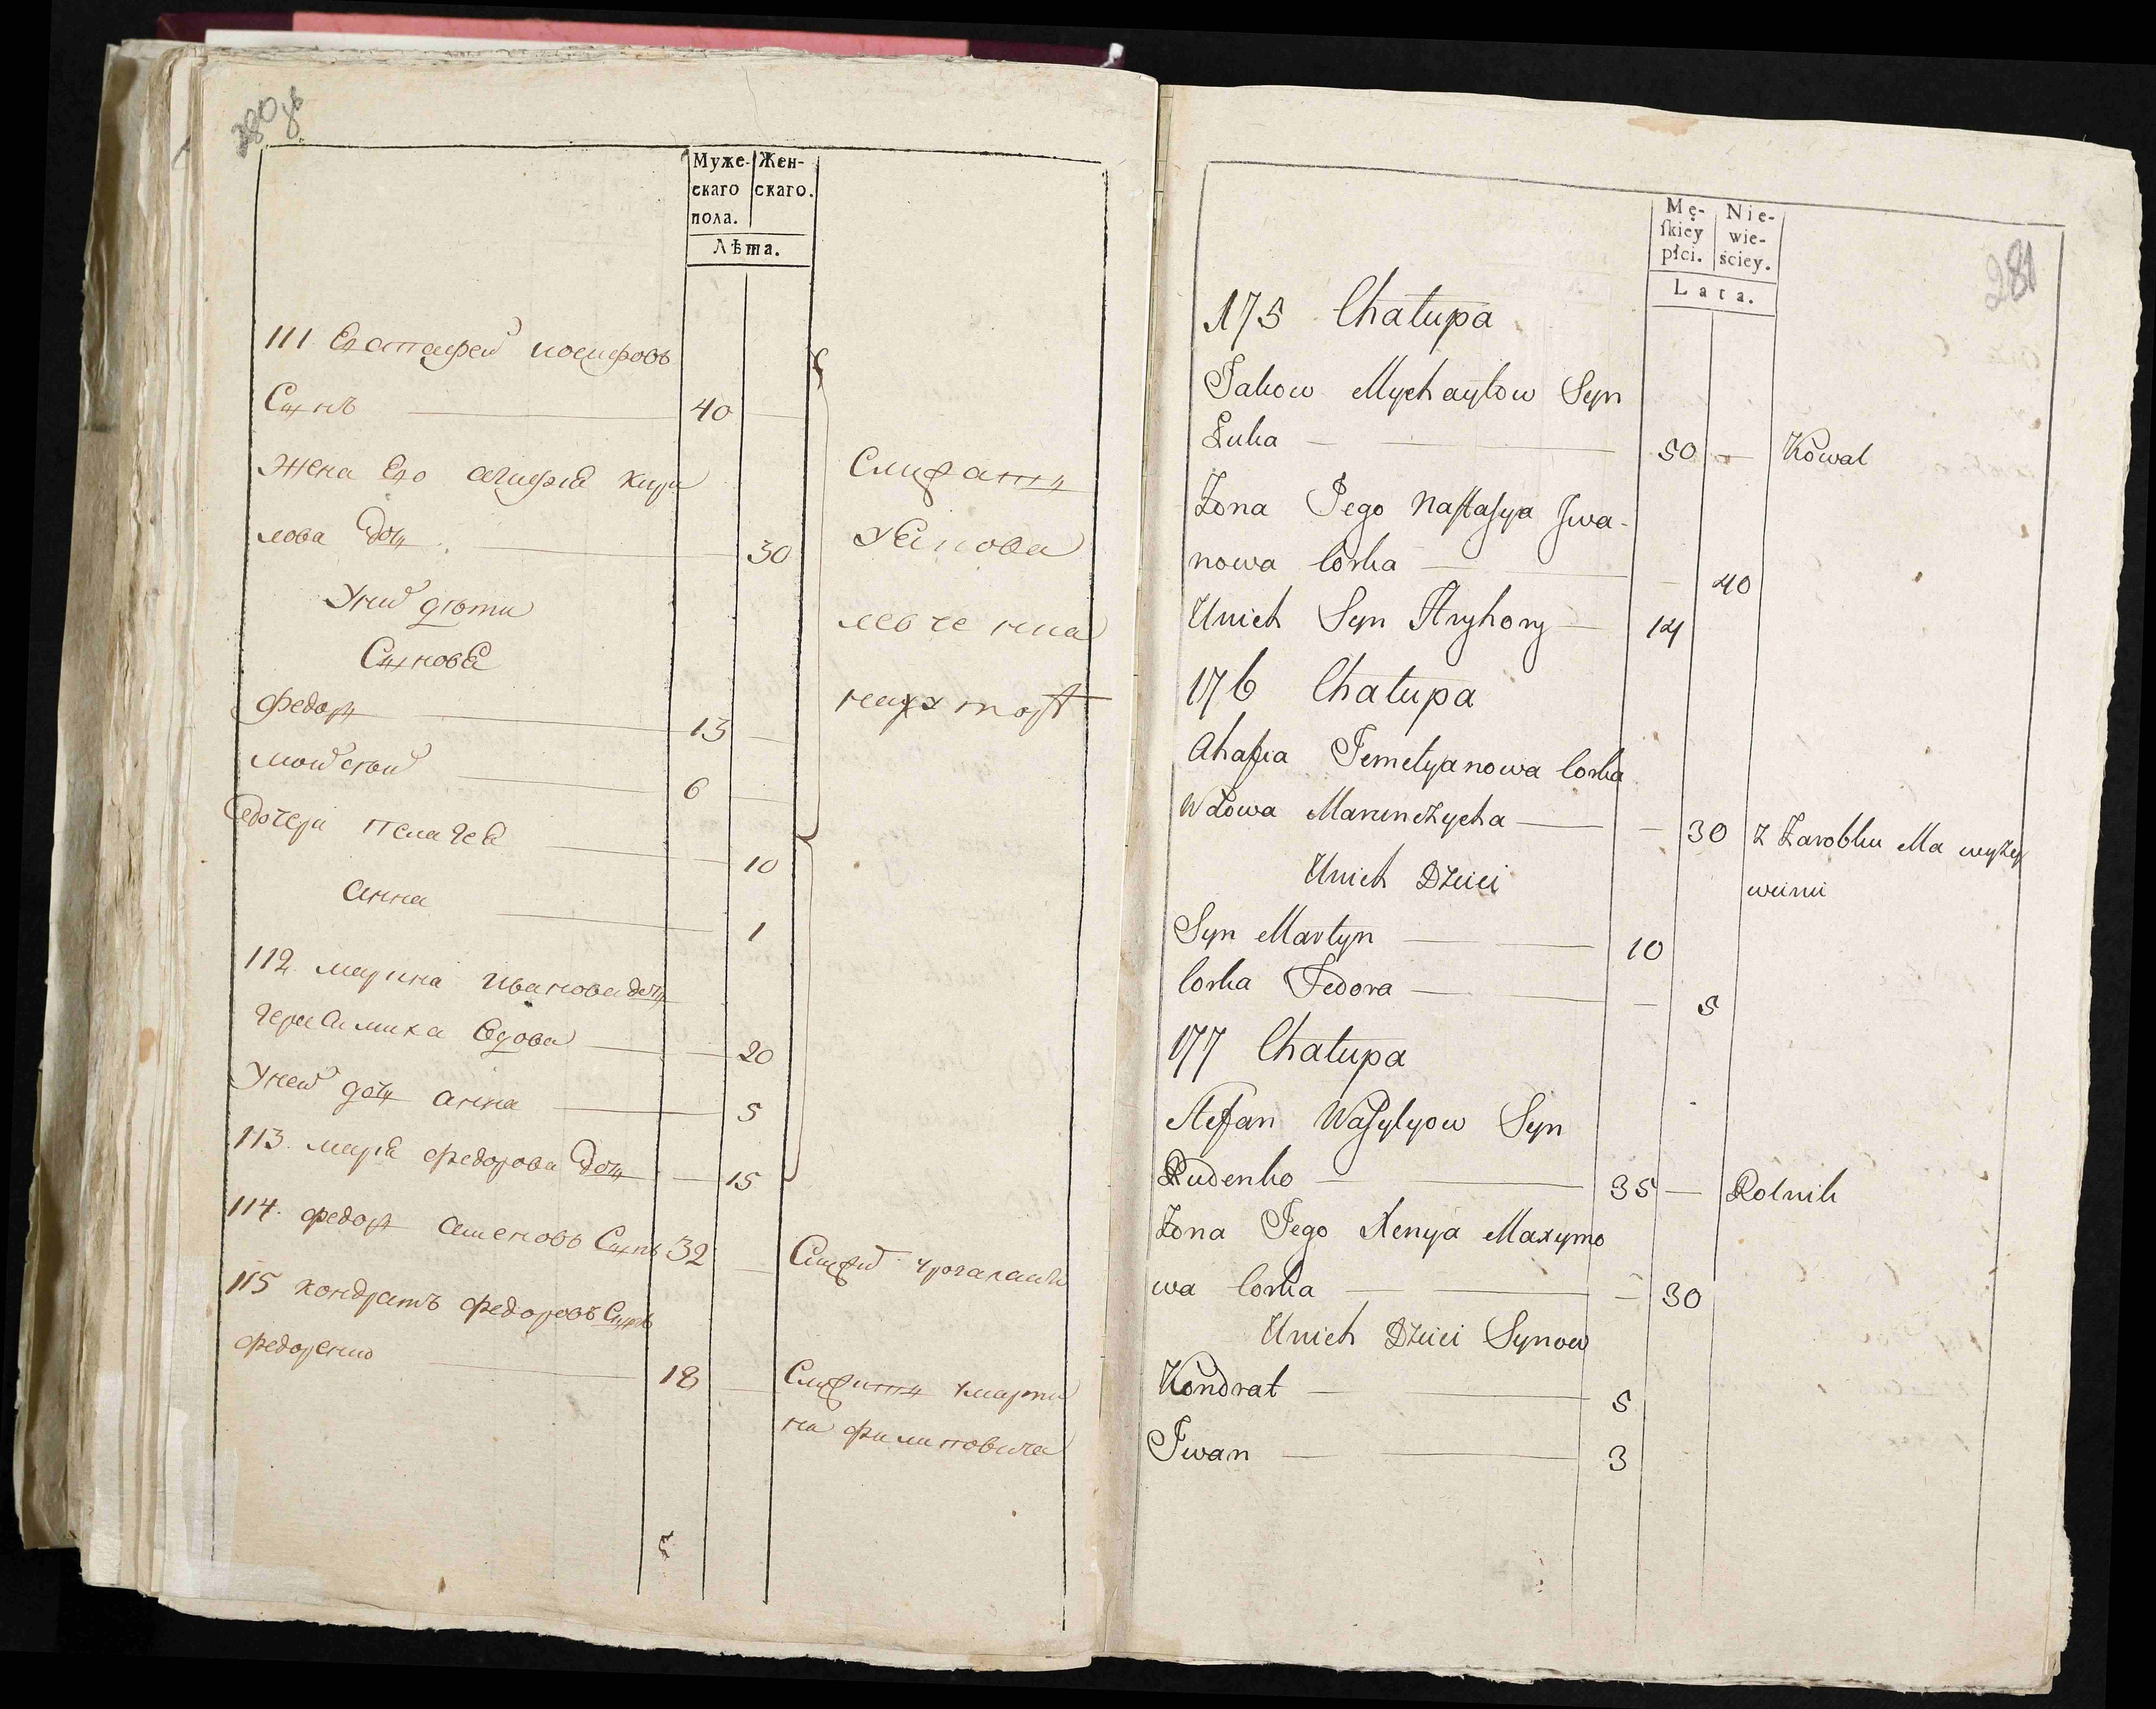 280 об
Муже- Жен-
скаго скаго.
пола.
Лѣта.
111. Евстафей иосифовъ
Сынъ 40
Жена Его агифиа Кири
лова дочь 30
У них дѣти
Сынова
Федоръ 13
мойсей 6
дочери Пелагея 10
Анна 1
112. марина Иванова дочь
Герасимиха вдова 20
У ней дочь анна 5
113. мария федорова дочь 15
114. федоръ Семеновъ Сынъ 32
115 кондратъ федоровъ Сынъ
федоренко 18
Служатъ
левченка
Служитъ
на филиповича
281
Mę- Nie-
ſkiey wie-
płci. ściey.
Lata.
175 Chałupa
Jakow Mychayłow Syn
Łuka 50 Kowal
Żona Jego Naſtaſya Jwa-
nowa Corka 40
Unich Syn Hryhory 14
176 Chałupa
Ahafia Jemelyanowa Corka
Wdowa Marunczycha 30 z Zarobku Ma wyży
wieni
Unich Dzieci
Syn Martyn 10
Corka Fedora 5
177 Chałupa
Stefan Waſylyow Syn
Rudenko 35 Rolnik
Żona Jego Xenya Maxymo
wa Corka 30
Unich Dzieci Synow
Kondrat 5
Jwan 3